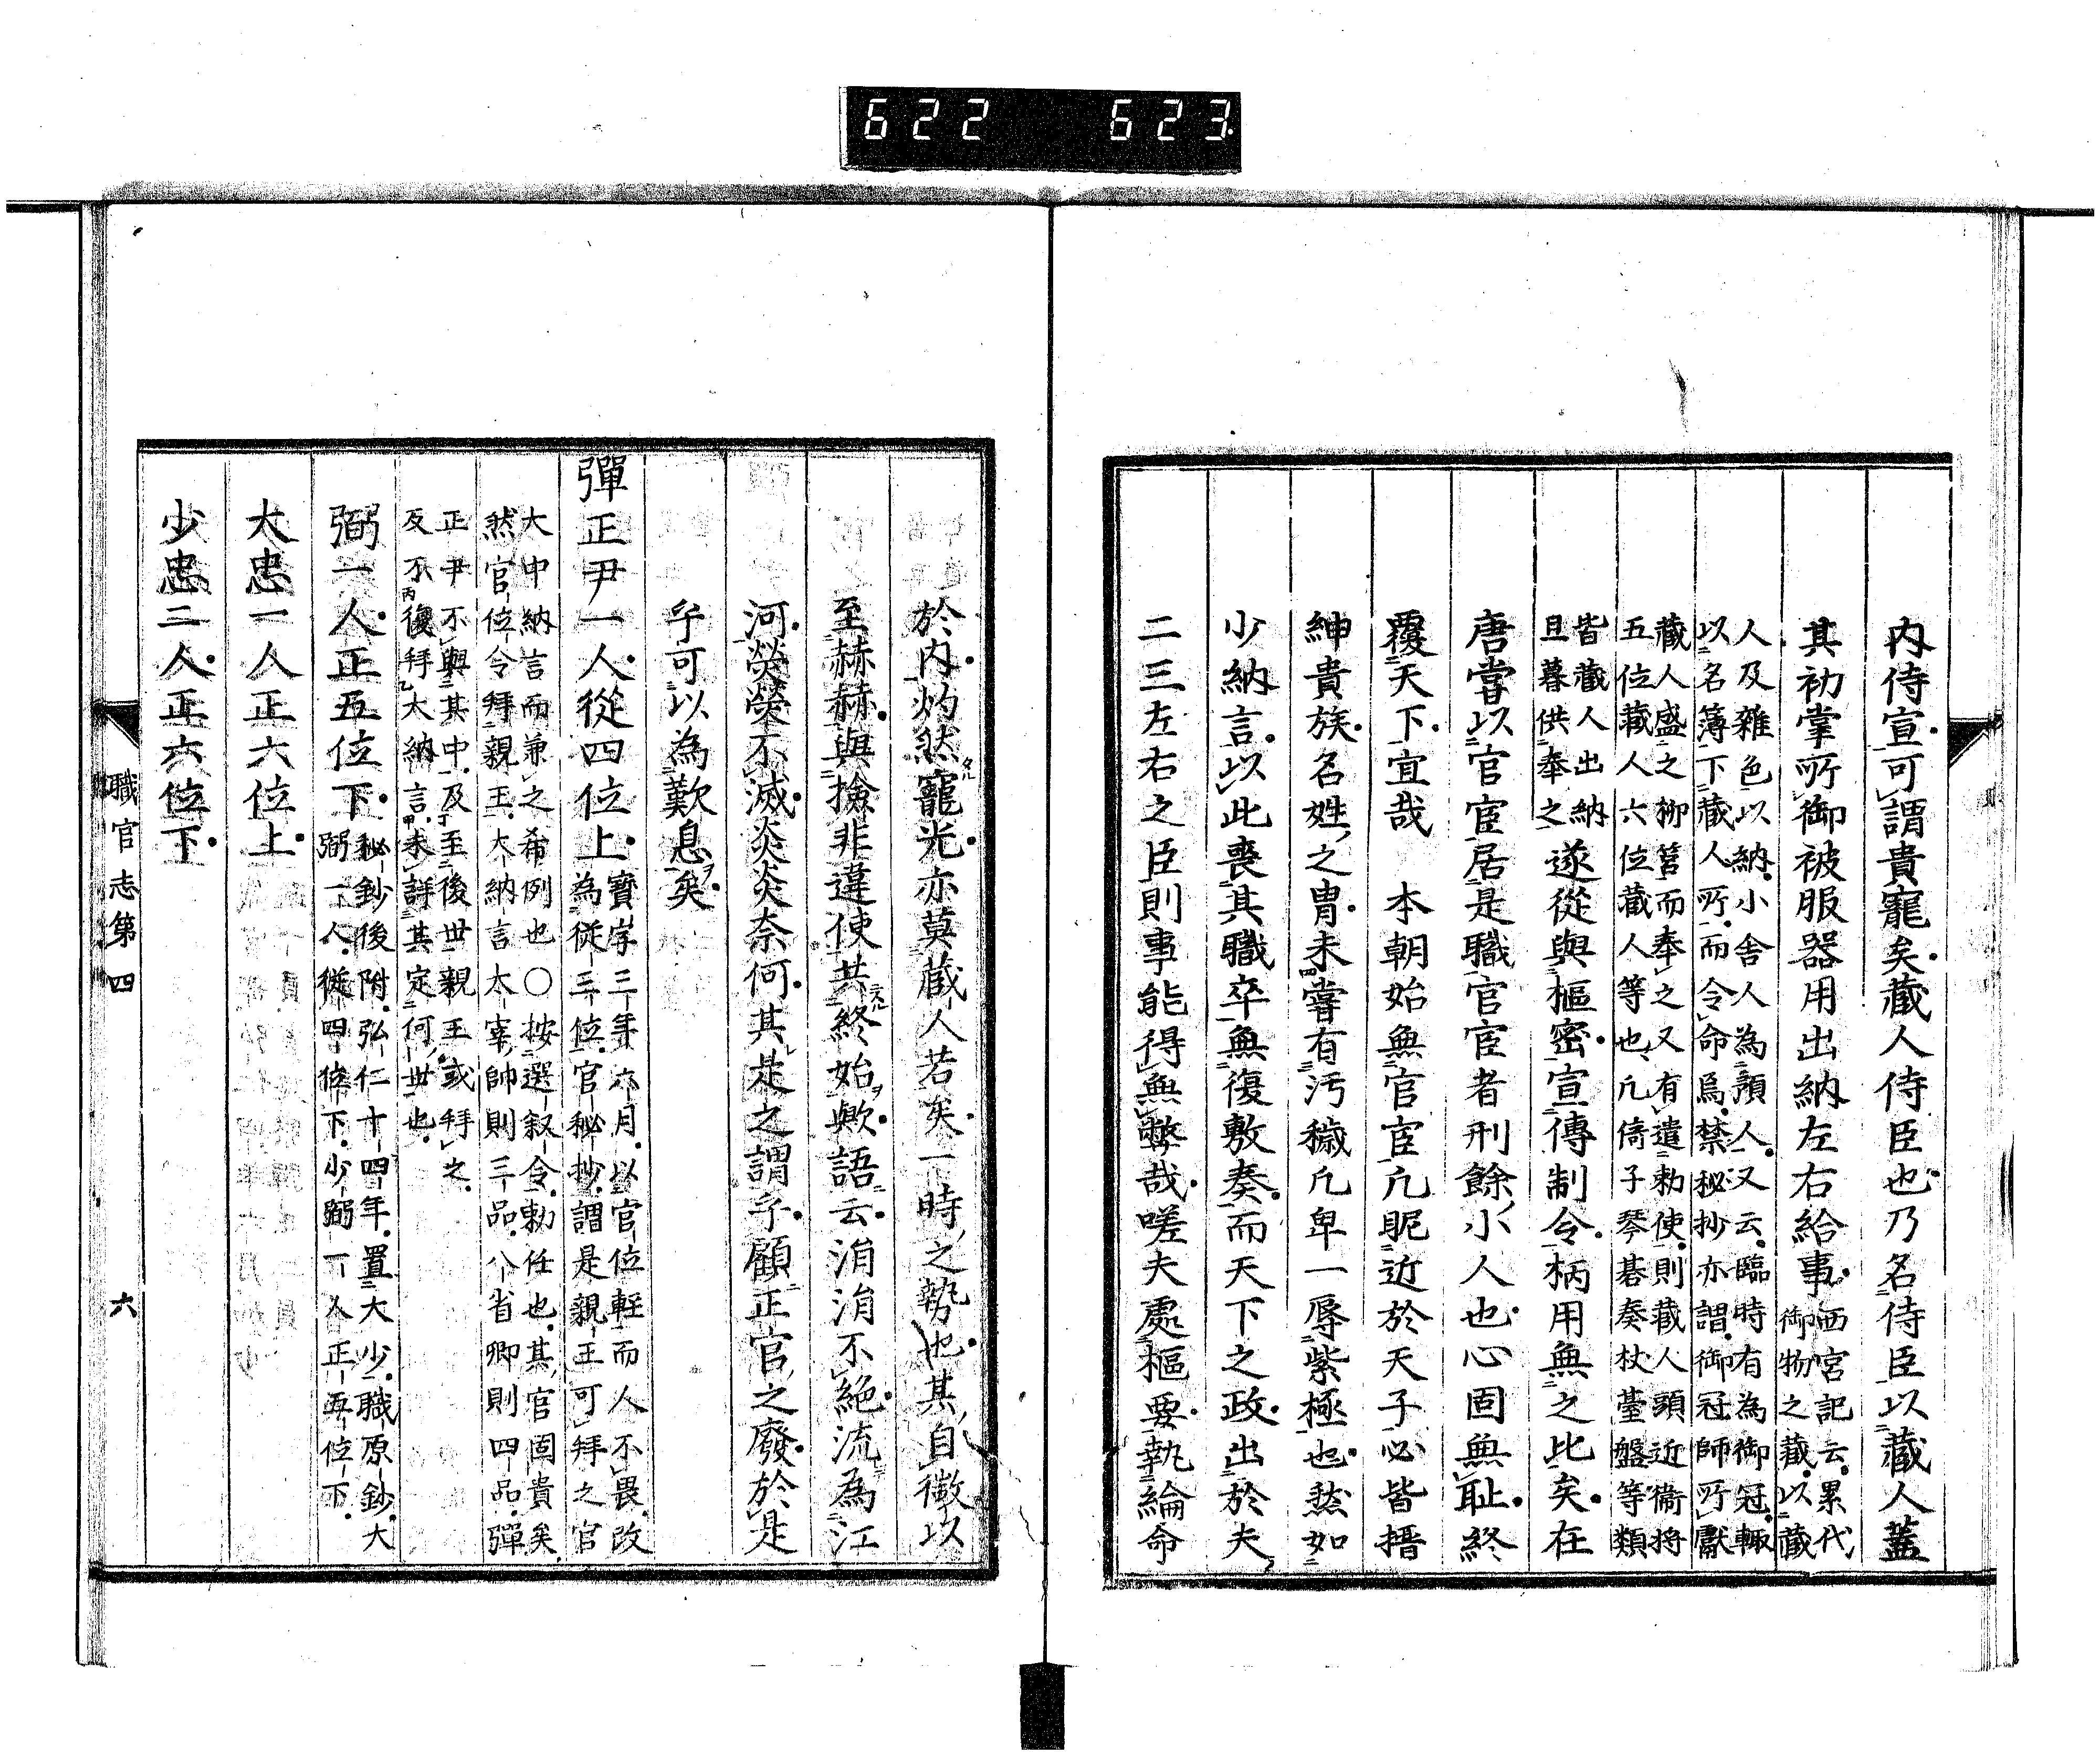 622 623
内侍宣可謂貴寵矣藏人侍臣也乃名侍臣以藏人蓋
其初掌所御被服器用出納左右給事西宮記云累代
御物之藏以藏
人及雜色以納小舍人為預人又云臨時有為御冠輙
以名簿下藏人所而令命烏禁秘抄亦謂御冠師所獻
藏人盛之柳筥而奉之又有遣勅使則藏人頭近衞将
五位藏人六位藏人等也凢倚子琴碁奏杖臺盤等類
皆藏人出納
且暮供奉之遂從與樞密宣傳制令柄用無之比矣在
唐嘗以官宦居是職官宦者刑餘小人也心固無耻終
覆天下宜哉 本朝始無官宦凢昵近於天子必皆搢
紳貴族名姓之冑未嘗有汚穢凢卑一辱紫極也然如
少納言以此喪其職卒無復敷奏而天下之政出於夫
二三左右之臣則事能得無弊哉嗟夫處樞要執綸命
於内灼然寵光亦莫藏人若矣一時之勢也其自徵以
タル
至赫赫與撿非違使共終始歟語云涓涓不絶流為江
河熒熒不滅炎炎奈何其是之謂乎顧正官之廢於是
乎可以為歎息矣
彈正尹一人從四位上寶字三年六月以官位軽而人不畏改
為從三位官秘抄謂是親王可拜之官
大中納言而兼之希例也〇按選叙令勅任也其官固貴矣
然官位令拜親王大納言太宰帥則三品八省卿則四品彈
正尹不與其中及至後世親王或拜之
反不復拜大納言未詳其定何世也
弼一人正五位下秘鈔後附弘仁十四年置大少職原鈔大
弼一人從四位下少弼一人正五位下
大忠一人正六位上
少忠二人正六位下
職官志第四
六